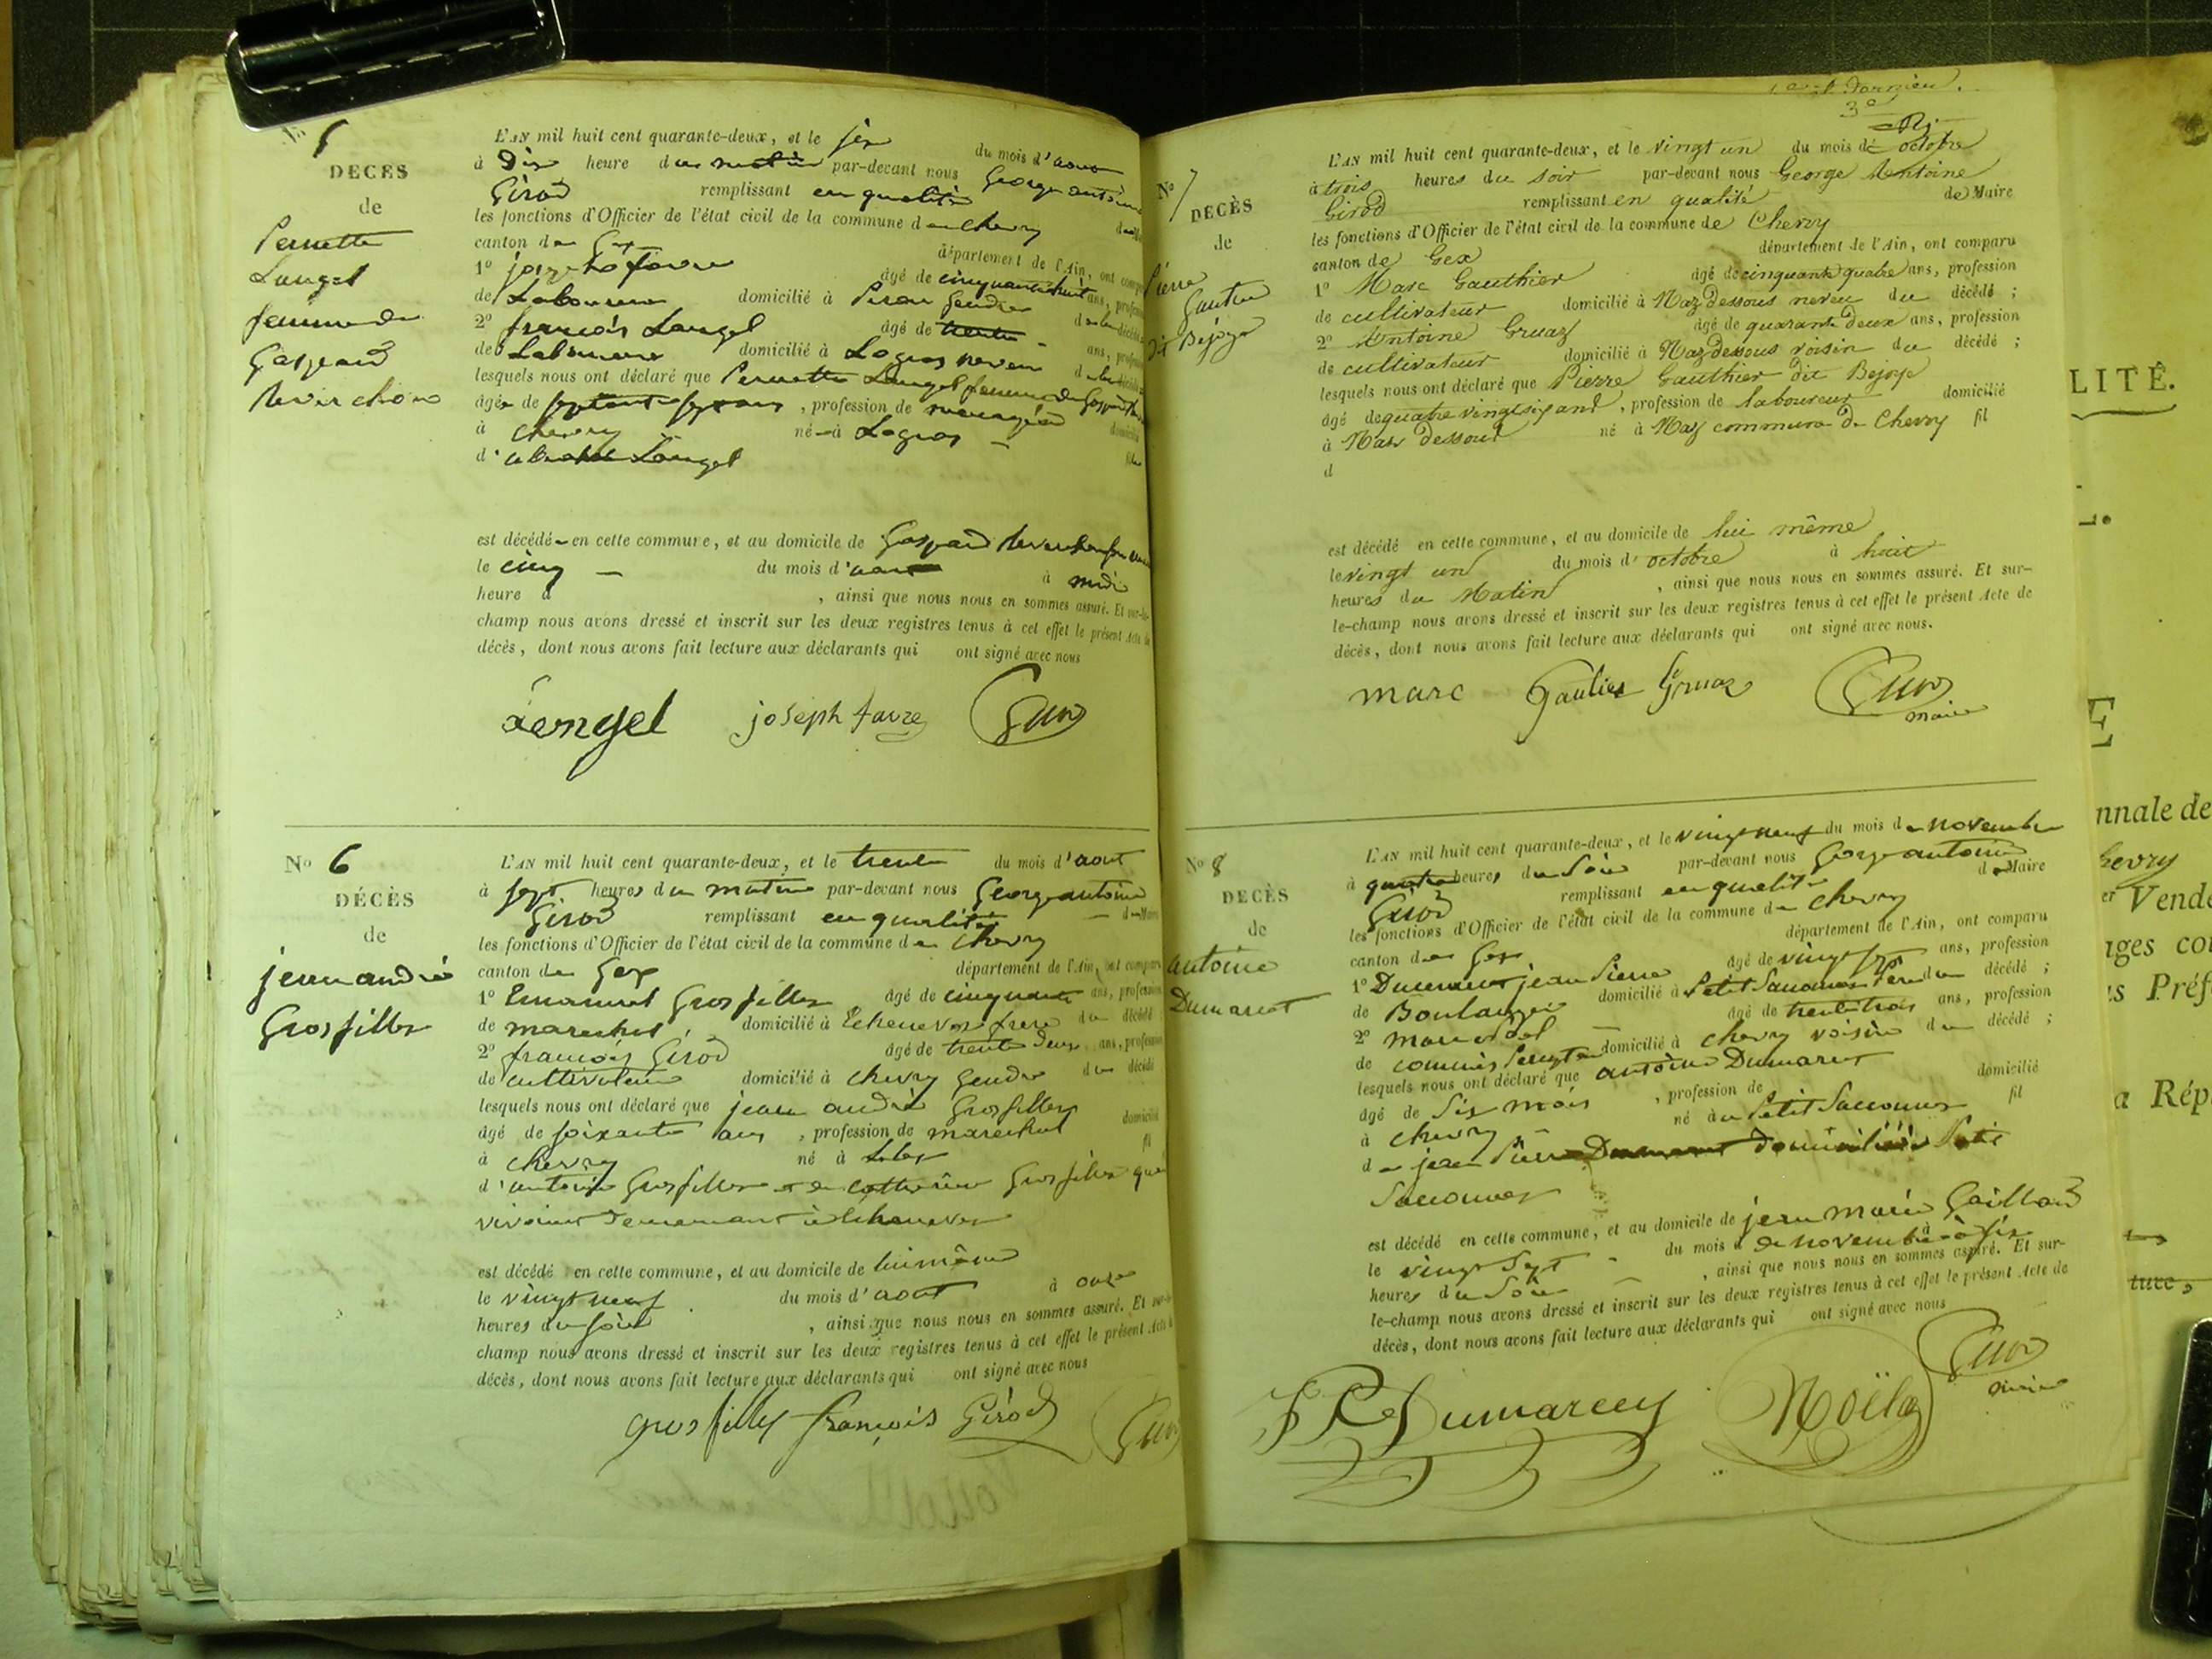 5
DÉCÈS
de
Pernette
Langel
femme de
Gaspard
L'AN mil huit cent quarante-deux, et le six du mois d'aout
à Dix heure du matin par-devant nous George antoine
Girod remplissant en qualité
les fonctions d'Officier de l'état civil de la commune de chevry
canton de Gex département de l'Ain, ont comparu
1º joseph favre âgé de cinquante huit ans, profession
de Laboureur domicilié à Peron Gendre
2º françois Langel âgé de trente ans, profession
de Laboureur domicilié à Logras neveu
lesquels nous ont déclaré que Pernette Langel femme de Gaspard
âgée de septante six ans, profession de menagère
à chevry né à Logras
d' Langel
est décédée en cette commune, et au domicile de Gaspard
le cinq du mois d'aout à midi
heure d , ainsi que nous nous en sommes assuré. Et sur-le-
champ nous avons dressé et inscrit sur les deux registres tenus à cet effet le présent Acte de
décès, dont nous avons fait lecture aux déclarants qui ont signé avec nous
Lengel joseph favre Girod
Nº 6
DÉCÈS
de
jean andré
Grosfilley
L'AN mil huit cent quarante-deux, et le trente du mois d'aout
à sept heures du matin par-devant nous George antoine
Girod remplissant en qualité de Maire
les fonctions d'Officier de l'état civil de la commune de chevry
canton de Gex département de l'Ain, ont comparu
1º Emanuel Grosfilley âgé de cinquante ans, profession
de marechal domicilié à Echenevex frere du décédé
2º françois Girod âgé de trente deux ans, profession
de cultivateur domicilié à chevry Gendre du décédé
lesquels nous ont déclaré que jean andré Grosfilley
âgé de soixante ans, profession de marechal domicilié
à chevry né à fil
d'antoine Grosfilley et de catherine Grosfilley qui
vivaient demeurant à Echenevex
est décédé en cette commune, et au domicile de lui même
le vingt neuf du mois d'aout à onze
heures du soir , ainsi que nous nous en sommes assuré. Et sur-le-
champ nous avons dressé et inscrit sur les deux registres tenus à cet effet le présent Acte de
décès, dont nous avons fait lecture aux déclarants qui ont signé avec nous
grosfilley françois Girod Girod
et dernier.
3e
Nº 7
DÉCÈS
de
Pierre
Gautier
dit Bejoye
L'AN mil huit cent quarante-deux, et le vingt un du mois d'octobre
à trois heures du soir par-devant nous George Antoine
Girod remplissant en qualité de Maire
les fonctions d'Officier de l'état civil de la commune de Chevry
canton de Gex département de l'Ain, ont comparu
1º Marc Gauthier âgé de cinquante quatre ans, profession
de cultivateur domicilié à Naz dessous neveu du décédé ;
2º Antoine Gruaz âgé de quarante deux ans, profession
de cultivateur domicilié à Naz dessous voisin du décédé ;
lesquels nous ont déclaré que Pierre Gauthier dit Bejoye
âgé de quatre vingt six ans, profession de laboureur domicilié
à Naz dessous né à Naz commune de Chevry fil
d
est décédé en cette commune, et au domicile de lui même
le vingt un du mois d'octobre à huit
heures du Matin , ainsi que nous nous en sommes assuré. Et sur-
le-champ nous avons dressé et inscrit sur les deux registres tenus à cet effet le présent Acte de
décès, dont nous avons fait lecture aux déclarants qui ont signé avec nous.
marc Gautier Gruaz Girod
maire
Nº 8
DÉCÈS
de
antoine
Dumaret
L'AN mil huit cent quarante-deux, et le vingt neuf du mois de novembre
à quatre heures du Soir par-devant nous George antoine
Girod remplissant en qualité de Maire
les fonctions d'Officier de l'état civil de la commune de chevry
canton de Gex département de l'Ain, ont comparu
1º Dumaret jean Pierre âgé de vingt sept ans, profession
de Boulanger domicilié à Petit Saconnex Pere du décédé ;
2º âgé de trente trois ans, profession
de commis domicilié à chevry voisin du décédé ;
lesquels nous ont déclaré que antoine Dumaret
âgé de Six mois , profession de domicilié
à chevry né au Petit Saconnex fil
de jean Pierre Dumaret domicilié à Petit
Saconnex
est décédé en cette commune, et au domicile de jean marie Gaillard
le vingt Sept du mois d de novembre à six
heures du Soir , ainsi que nous nous en sommes assuré. Et sur-
le-champ nous avons dressé et inscrit sur les deux registres tenus à cet effet le présent Acte de
décès, dont nous avons fait lecture aux déclarants qui ont signé avec nous
Noël Girod
maire
LITÉ.
E
nnale de
hevry
Vende